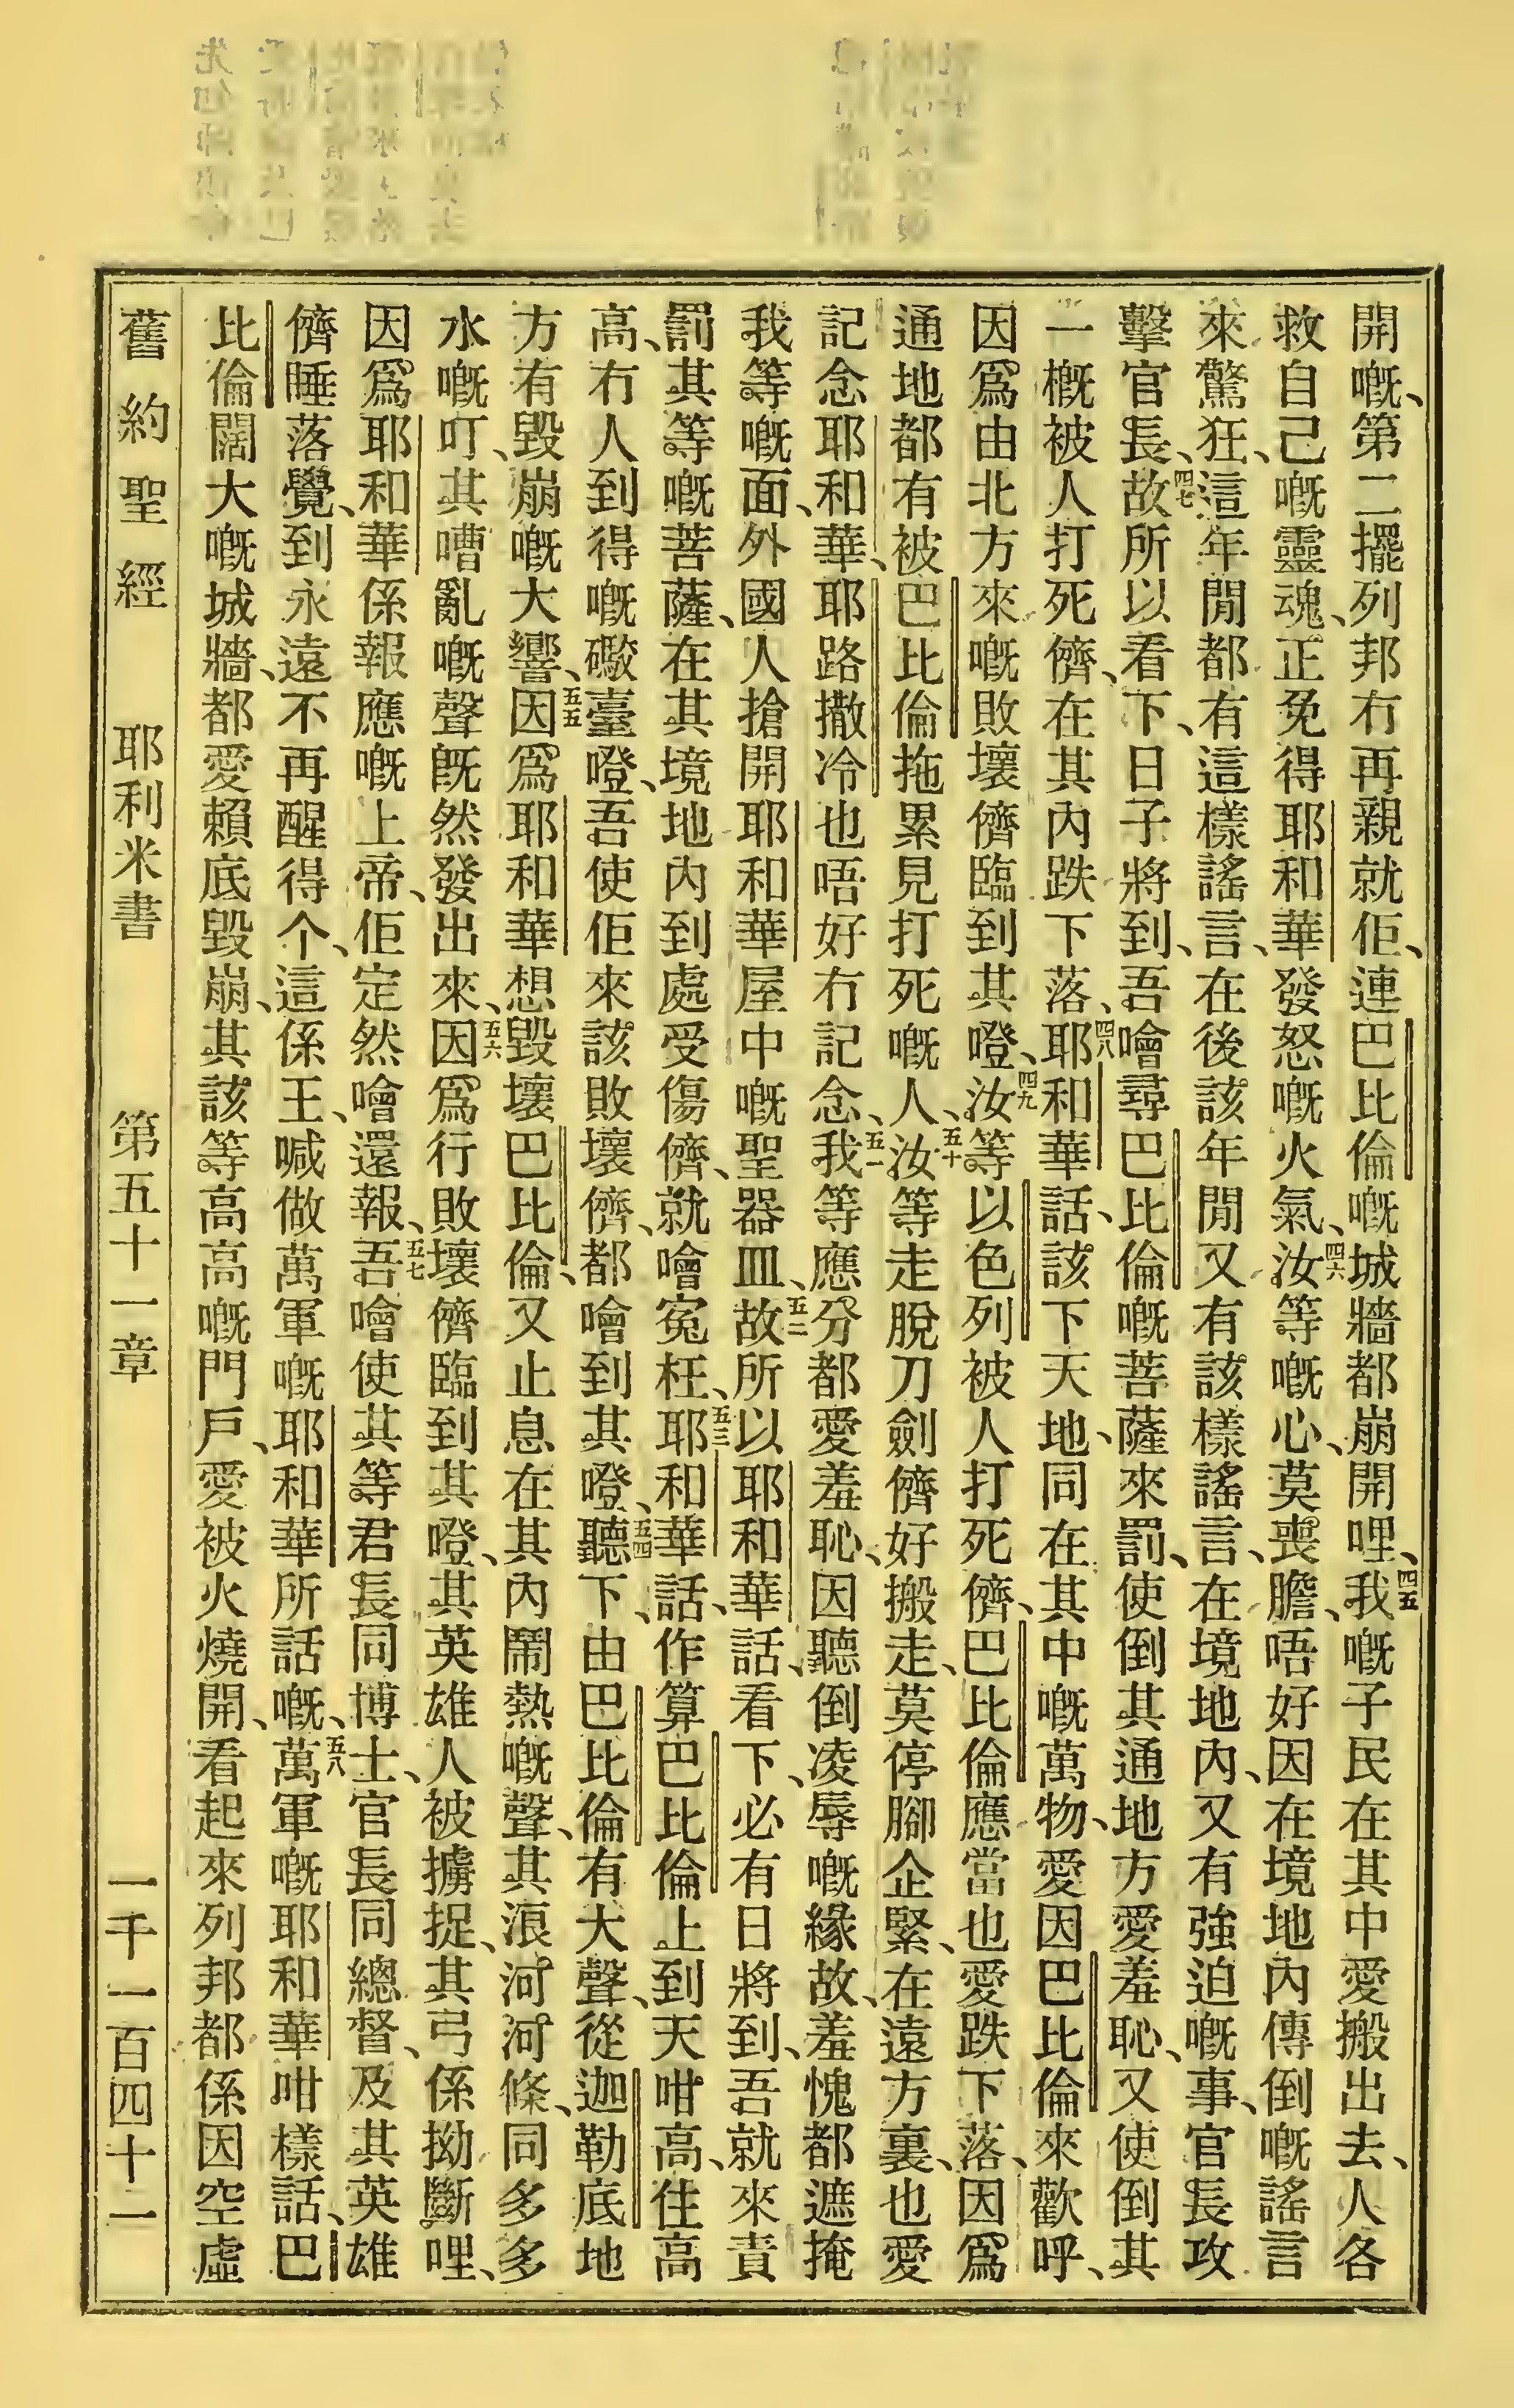 開嘅、第二擺列邦冇再親就佢、連巴比倫嘅城牆都崩開哩、四五我嘅子民在其中愛搬出去、人各
救自己嘅靈魂、正免得耶和華發怒嘅火氣、四六汝等嘅心、莫喪膽、唔好因在境地內傳倒嘅謠言
來驚狂、這年閒都有這樣謠言、在後該年閒又有該樣謠言、在境地內、又有強迫嘅事、官長攻
擊官長、四七故所以看下、日子將到、吾噲尋巴比倫嘅菩薩來罰、使倒其通地方愛羞恥、又使倒其
一概被人打死儕、在其內跌下落、四八耶和華話、該下天地、同在其中嘅萬物、愛因巴比倫來歡呼、
因爲由北方來嘅敗壞儕臨到其嶝、四九汝等以色列被人打死儕、巴比倫應當也愛跌下落、因爲
通地都有被巴比倫拖累見打死嘅人、五十汝等走脫刀劍儕好搬走、莫停腳企緊、在遠方裏、也愛
記念耶和華、耶路撒冷也唔好冇記念、五一我等應分都愛羞恥、因聽倒凌辱嘅緣故、羞愧都遮掩
我等嘅面、外國人搶開耶和華屋中嘅聖器皿、五二故所以耶和華話、看下、必有日將到、吾就來責
罰其等嘅菩薩、在其境地內到處受傷儕、就噲冤枉、五三耶和華話、作算巴比倫上到天咁高、住高
高、冇人到得嘅礮臺嶝、吾使佢來該敗壞儕、都噲到其嶝、五四聽下、由巴比倫有大聲、從迦勒底地
方有毀崩嘅大響、五五因爲耶和華想毀壞巴比倫、又止息在其內鬧熱嘅聲、其浪河河條、同多多
水嘅叮、其嘈亂嘅聲旣然發出來、五六因爲行敗壞儕臨到其嶝、其英雄人被擄捉、其弓係拗斷哩、
因爲耶和華係報應嘅上帝、佢定然噲還報、五七吾噲使其等君長同博士、官長同總督、及其英雄
儕睡落覺、到永遠不再醒得个、這係王、喊做萬軍嘅耶和華所話嘅、五八萬軍嘅耶和華咁樣話、巴
比倫闊大嘅城牆、都愛賴底毀崩、其該等高高嘅門戶、愛被火燒開、看起來列邦都係因空虛
舊約聖經　耶利米書　第五十一章　一千一百四十二